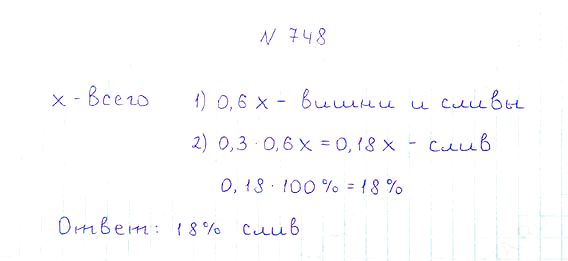 N 748
х - всего 1) 0,6 х - вишни и сливы
2) 0,3 · 0,6 х = 0,18 х - слив
0,18 · 100 % = 18 %
Ответ: 18 % слив